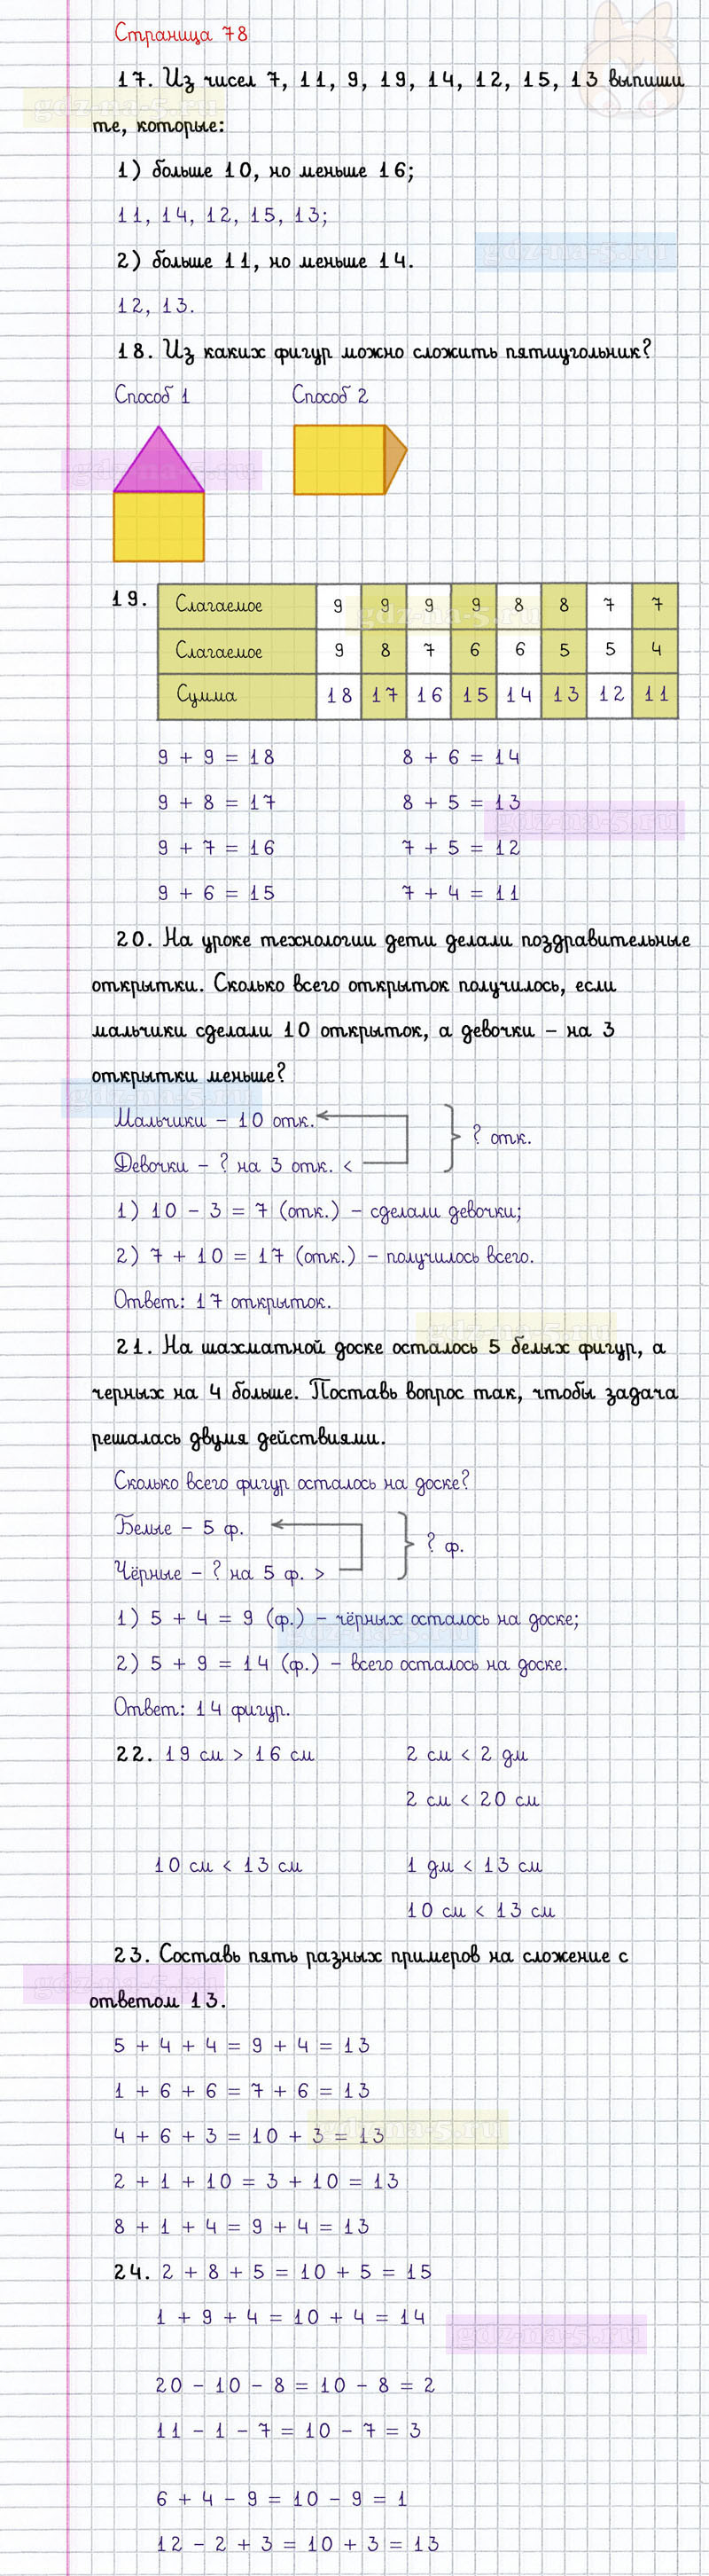 Страница 78
17. Из чисел 7, 11, 9, 19, 14, 12, 15, 13 выпиши
те, которые:
1) больше 10, но меньше 16;
11, 14, 12, 15, 13;
gdz-na-5.ru
2) больше 11, но меньше 14.
12, 13.
18. Из каких фигур можно сложить пятиугольник?
Способ 1 Способ 2
gdz-na-5.ru
19. Слагаемое 9 9 9 9 8 8 7 7
Слагаемое 9 8 7 6 6 5 5 4
Сумма 18 17 16 15 14 13 12 11
9 + 9 = 18 8 + 6 = 14
9 + 8 = 17 8 + 5 = 13
gdz-na-5.ru
9 + 7 = 16 7 + 5 = 12
9 + 6 = 15 7 + 4 = 11
20. На уроке технологии дети делали поздравительные
открытки. Сколько всего открыток получилось, если
мальчики сделали 10 открыток, а девочки – на 3
открытки меньше?
gdz-na-5.ru
Мальчики – 10 отк.
? отк.
Девочки – ? на 3 отк. <
1) 10 – 3 = 7 (отк.) – сделали девочки;
2) 7 + 10 = 17 (отк.) – получилось всего.
Ответ: 17 открыток.
gdz-na-5.ru
21. На шахматной доске осталось 5 белых фигур, а
черных на 4 больше. Поставь вопрос так, чтобы задача
решалась двумя действиями.
Сколько всего фигур осталось на доске?
Белые – 5 ф.
? ф.
Чёрные – ? на 5 ф. >
1) 5 + 4 = 9 (ф.) – чёрных осталось на доске;
gdz-na-5.ru
2) 5 + 9 = 14 (ф.) – всего осталось на доске.
Ответ: 14 фигур.
22. 19 см > 16 см 2 см < 2 дм
2 см < 20 см
10 см < 13 см 1 дм < 13 см
10 см < 13 см
23. Составь пять разных примеров на сложение с
gdz-na-5.ru
ответом 13.
5 + 4 + 4 = 9 + 4 = 13
1 + 6 + 6 = 7 + 6 = 13
4 + 6 + 3 = 10 + 3 = 13
gdz-na-5.ru
2 + 1 + 10 = 3 + 10 = 13
8 + 1 + 4 = 9 + 4 = 13
24. 2 + 8 + 5 = 10 + 5 = 15
1 + 9 + 4 = 10 + 4 = 14
gdz-na-5.ru
20 – 10 – 8 = 10 – 8 = 2
11 – 1 – 7 = 10 – 7 = 3
6 + 4 – 9 = 10 – 9 = 1
12 – 2 + 3 = 10 + 3 = 13